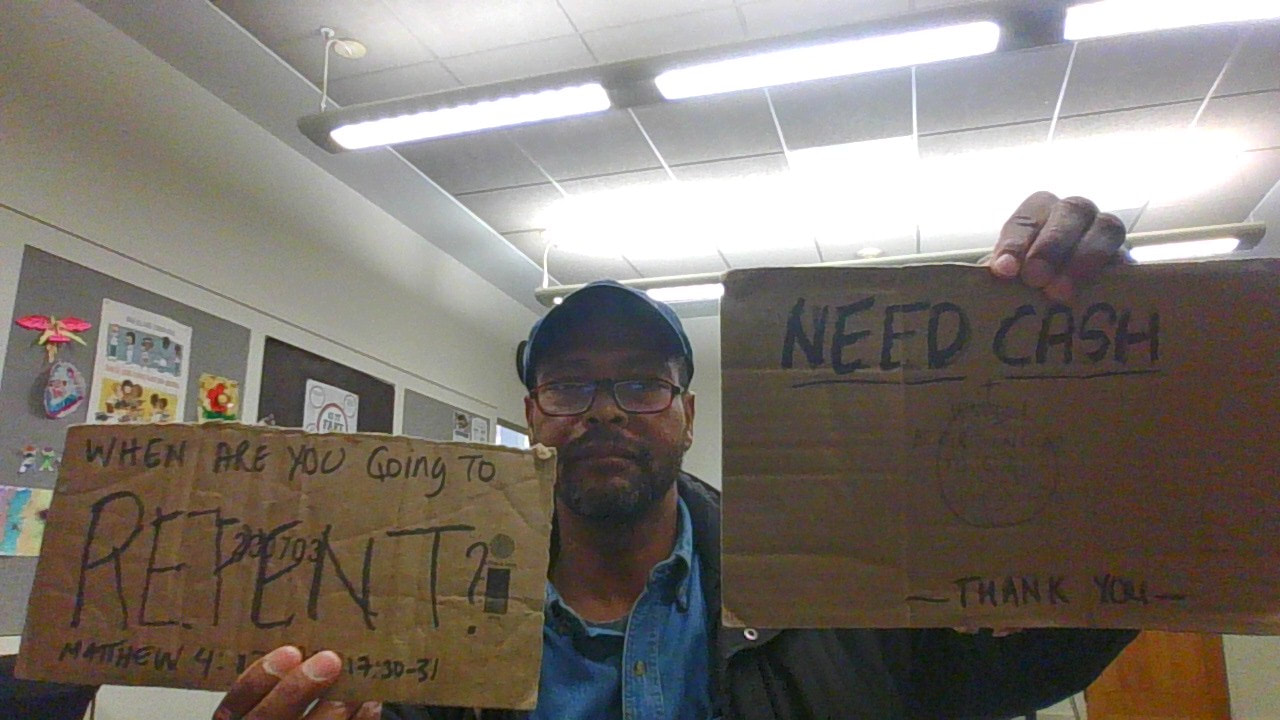 WHEN ARE YOU Going TO
REPENT?
230703
MATTHEW 4:17 17:30-31
NEED CASH
THANK YOU